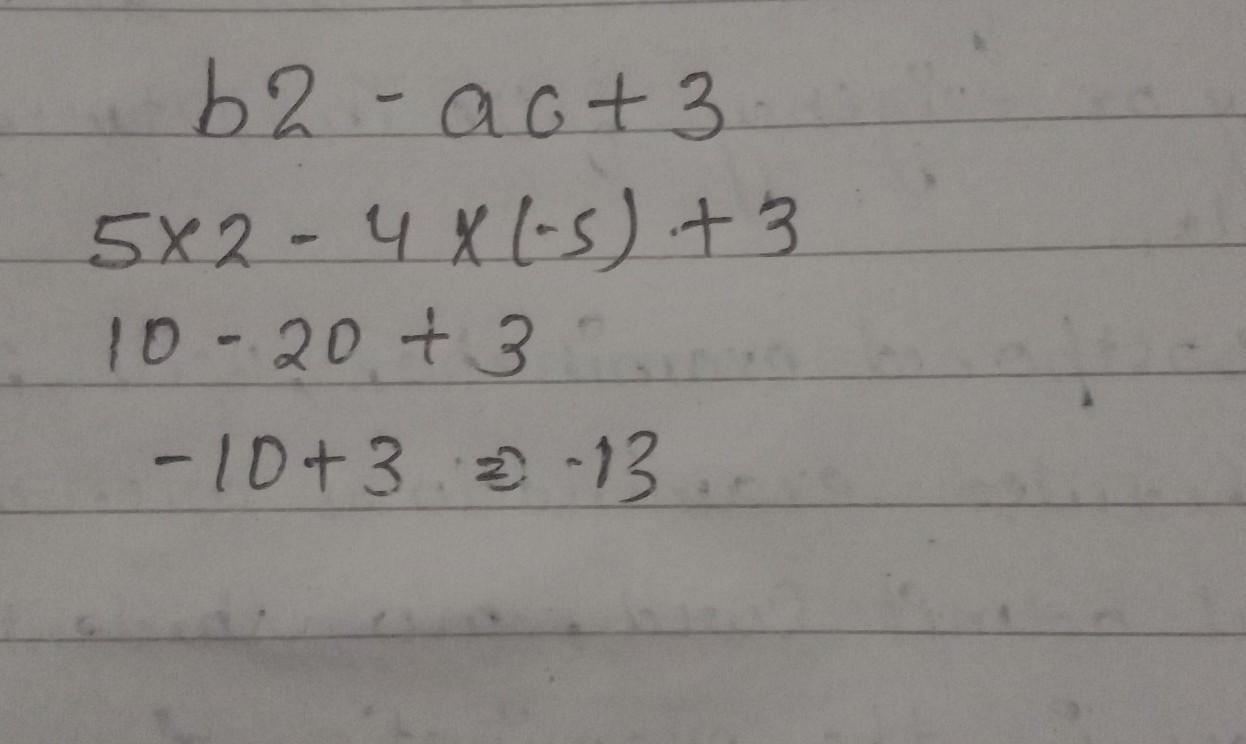 b2 - ac + 3
5x2 - 4 x (-5) + 3
10 - 20 + 3
-10 + 3 => -13